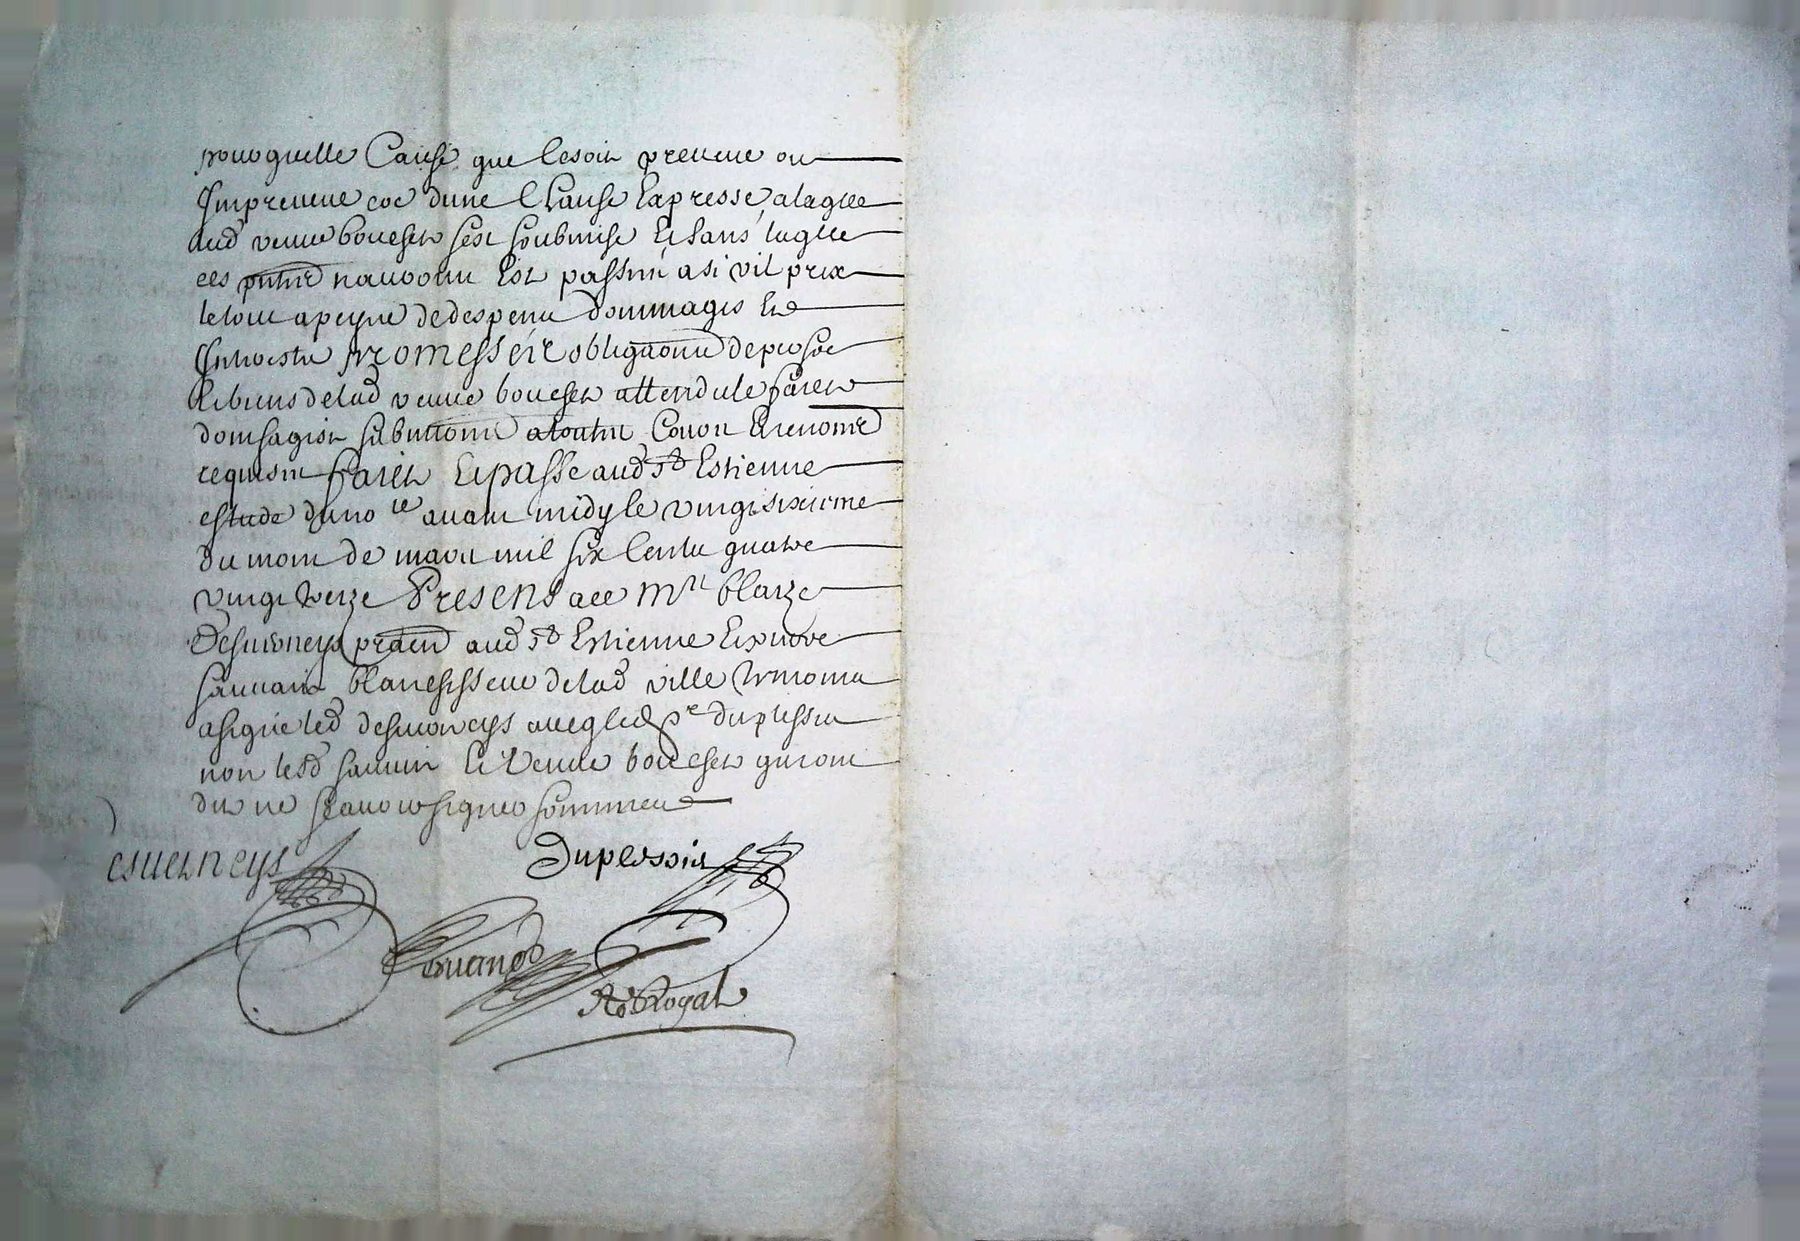 pour quelle Cause que cesoit preveue ou
Impreveue coe dune Clause Expresse, a laqlle
lad veuve bouchet sest soubmise Et sans laqlle
ces pntes nauroint Est passeés a si vil prix
le tout a peyne de despens dommages Et
Interestz promesse ir obligaons de persoe
Et biens de lad veuve bouchet attendu le faict
dont sagist submissions a toutes Cours Et renoncd
requises faict Et passe aud St Estienne
estude du no re avant midy le vingt sixiesme
du mois de mars mil six Cents quatre
vingt treize Presens ace Mre blaize
Desverneys praticn aud St Estienne Et pierre
sauvain blanchisseur delad ville tesmoins
a signe led desverneys avecq led sr duplessis
non lesd sauvain Et Veuve bouchet qui ont
dit ne scavoir signer sommes
esverneys
Duplessis
No Royal